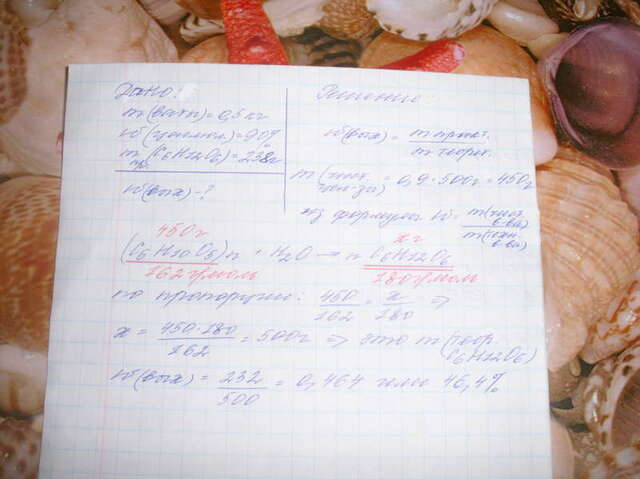 Дано:
m(ваты) = 0,5 кг
w(целлюл) = 90%
m пр. (C6H12O6) = 238г
w(вых) - ?
Решение
w(вых) = m практ. / m теорет.
m(чист. цел-зы) = 0,9 · 500г = 450г
из формулы w = m(чист. в-ва) / m(техн. в-ва)
450г x г
(C6H10O5)n + H2O → n C6H12O6
162 г/моль 180 г/моль
по пропорции: 450/162 = x/180 ⇒
x = 450·180/162 = 500г ⇒ это m(теор. C6H12O6)
w(вых) = 232/500 = 0,464 или 46,4%